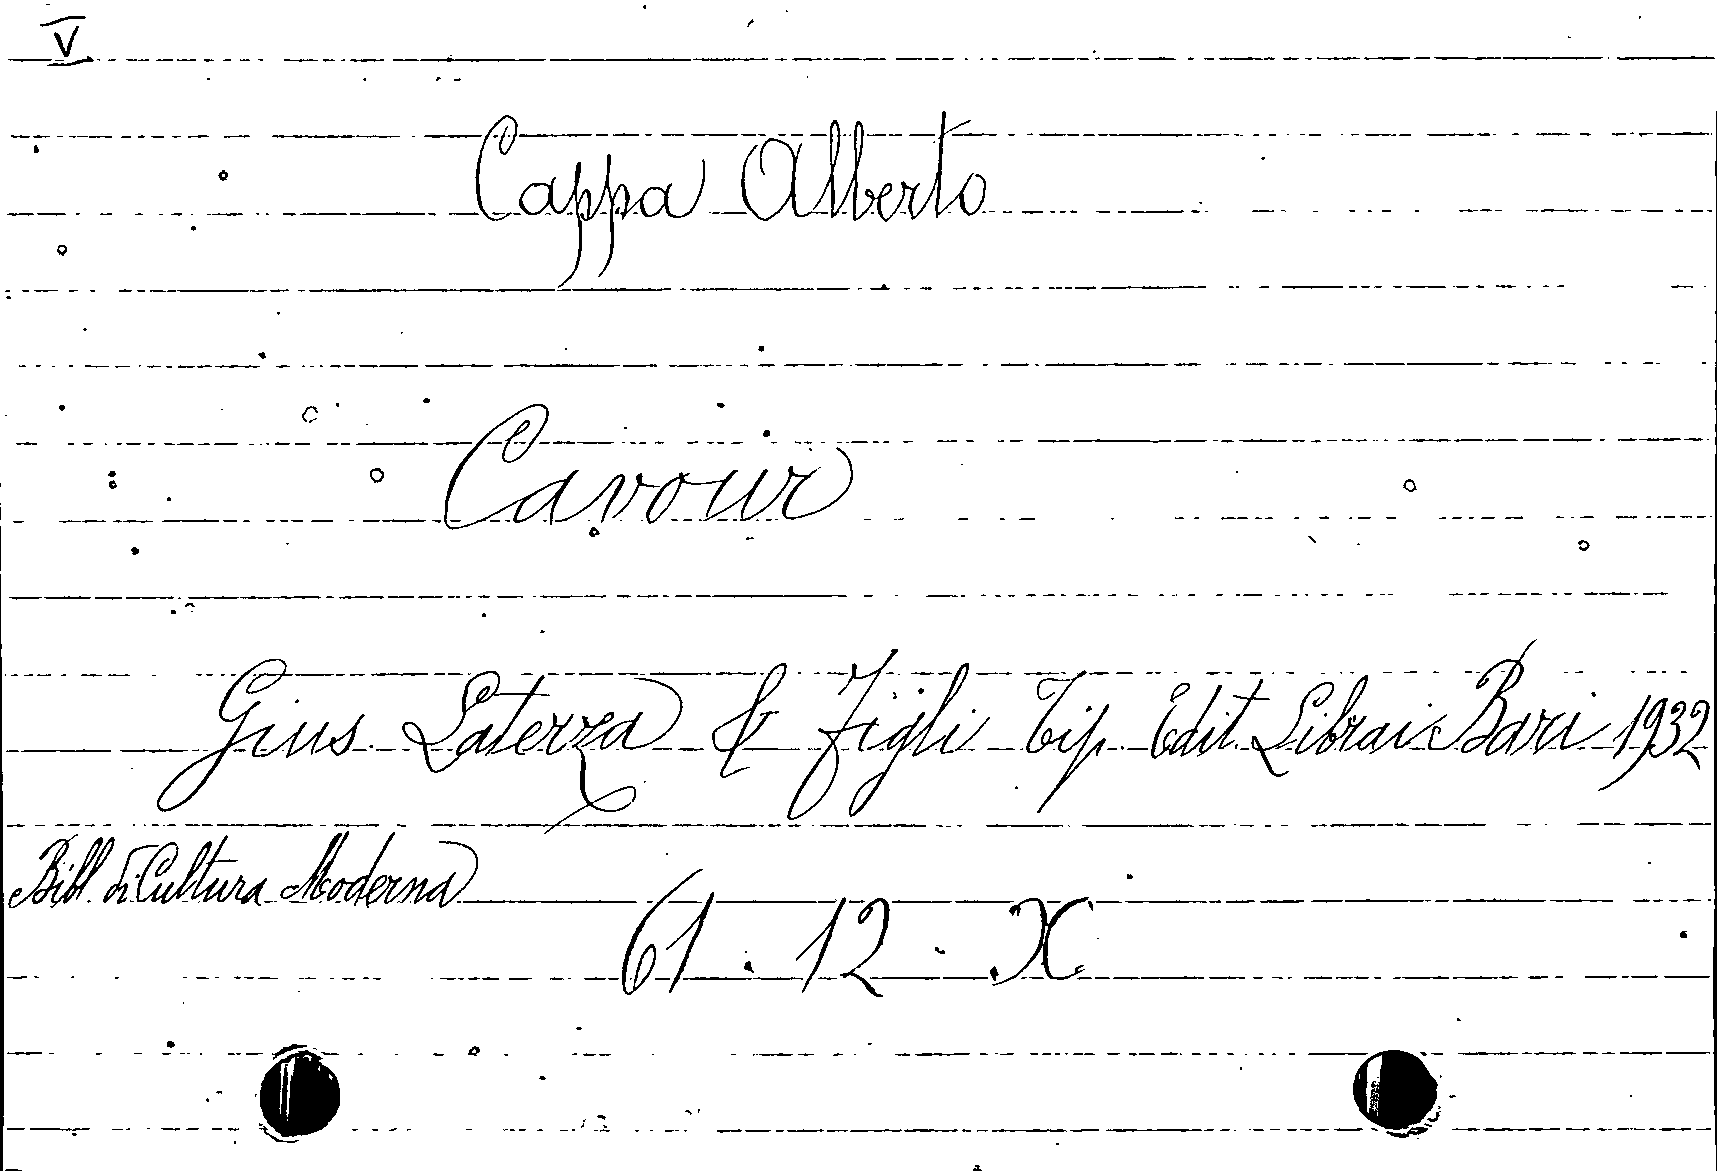 V
Cappa Alberto
Cavour
Gius. Laterza & Figli Tip. Edit. Librai Bari 1932
Bibl. di Cultura Moderna
61 . 12 . X